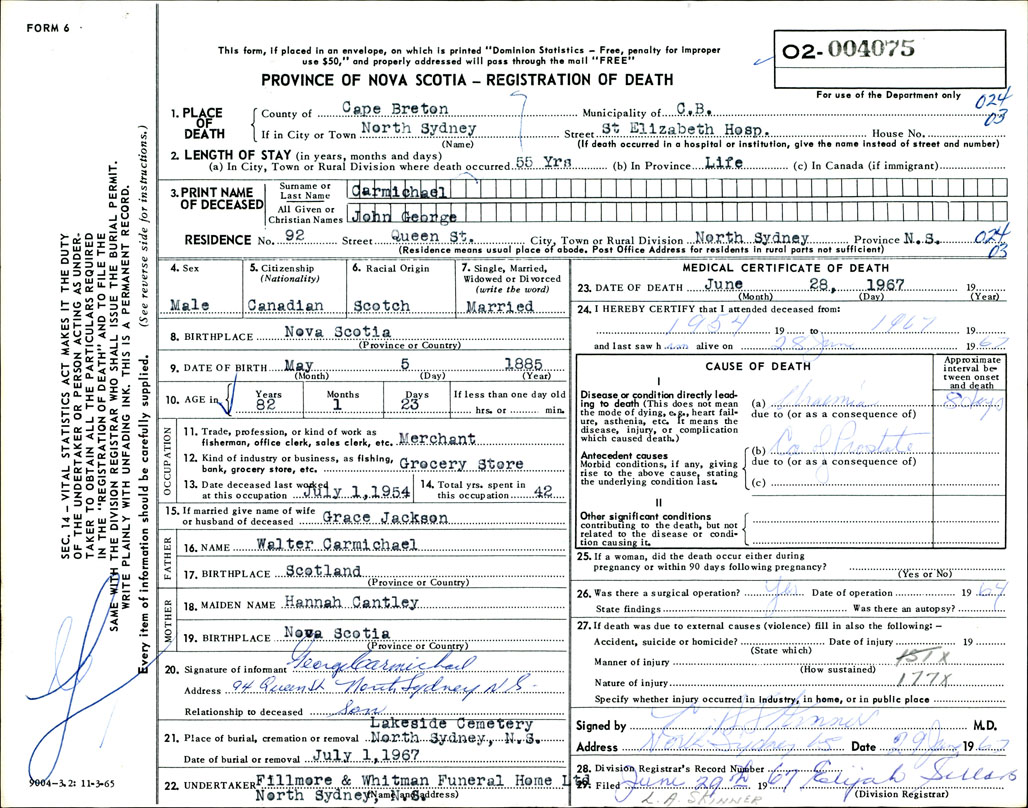 FORM 6
This form, if placed in an envelope, on which is printed "Dominion Statistics – Free, penalty for improper
use $50," and properly addressed will pass through the mail "FREE"
PROVINCE OF NOVA SCOTIA – REGISTRATION OF DEATH
02-004075
For use of the Department only
024
03
1. PLACE OF DEATH County of Cape Breton Municipality of C.B.
If in City or Town North Sydney Street St Elizabeth Hosp. House No.
(Name) (If death occurred in a hospital or institution, give the name instead of street and number)
2. LENGTH OF STAY (in years, months and days)
(a) In City, Town or Rural Division where death occurred 55 Yrs (b) In Province Life (c) In Canada (if immigrant)
3. PRINT NAME OF DECEASED Surname or Last Name Carmichael
All Given or Christian Names John George
RESIDENCE No. 92 Street Queen St. City, Town or Rural Division North Sydney Province N.S. 024
03
(Residence means usual place of abode. Post Office Address for residents in rural parts not sufficient)
4. Sex
Male
5. Citizenship
(Nationality)
Canadian
6. Racial Origin
Scotch
7. Single, Married,
Widowed or Divorced
(write the word)
Married
8. BIRTHPLACE Nova Scotia
(Province or Country)
9. DATE OF BIRTH May 5 1885
(Month) (Day) (Year)
10. AGE in Years Months Days If less than one day old
82 1 23 hrs. or min.
OCCUPATION
11. Trade, profession, or kind of work as
fisherman, office clerk, sales clerk, etc. Merchant
12. Kind of industry or business, as fishing,
bank, grocery store, etc. Grocery Store
13. Date deceased last worked
at this occupation July 1, 1954
14. Total yrs. spent in
this occupation 42
15. If married give name of wife
or husband of deceased Grace Jackson
FATHER
16. NAME Walter Carmichael
17. BIRTHPLACE Scotland
(Province or Country)
MOTHER
18. MAIDEN NAME Hannah Cantley
19. BIRTHPLACE Nova Scotia
(Province or Country)
20. Signature of informant George Carmichael
Address 94 Queen St North Sydney N.S.
Relationship to deceased Son
Lakeside Cemetery
21. Place of burial, cremation or removal North Sydney, N.S.
Date of burial or removal July 1, 1967
22. UNDERTAKER Fillmore & Whitman Funeral Home Ltd
North Sydney, N.S.
(Name and address)
MEDICAL CERTIFICATE OF DEATH
23. DATE OF DEATH June 28, 1967 19
(Month) (Day) (Year)
24. I HEREBY CERTIFY that I attended deceased from:
1954 19 to 1967 19
and last saw h im alive on 28 June 1967
CAUSE OF DEATH
Approximate interval between onset and death
I
Disease or condition directly leading to death (This does not mean
the mode of dying, e.g., heart failure, asthenia, etc. It means the
disease, injury, or complication
which caused death.)
(a) Uraemia 8 days
due to (or as a consequence of)
Antecedent causes
Morbid conditions, if any, giving
rise to the above cause, stating
the underlying condition last.
(b) Ca of Prostate
due to (or as a consequence of)
(c)
II
Other significant conditions
contributing to the death, but not
related to the disease or condition causing it.
25. If a woman, did the death occur either during
pregnancy or within 90 days following pregnancy?
(Yes or No)
26. Was there a surgical operation? Yes Date of operation 1964
State findings Was there an autopsy?
27. If death was due to external causes (violence) fill in also the following: –
Accident, suicide or homicide? Date of injury 19
(State which)
Manner of injury 151X
(How sustained)
Nature of injury 177X
Specify whether injury occurred in industry, in home, or in public place
Signed by L. A. Skinner M.D.
Address North Sydney NS Date 29 June 1967
28. Division Registrar's Record Number
29. Filed June 29th 1967 Elijah Sellars
(Division Registrar)
L.A. SKINNER
SEC. 14 – VITAL STATISTICS ACT MAKES IT THE DUTY
OF THE UNDERTAKER OR PERSON ACTING AS UNDERTAKER TO OBTAIN ALL THE PARTICULARS REQUIRED
IN THE "REGISTRATION OF DEATH" AND TO FILE THE
SAME WITH THE DIVISION REGISTRAR WHO SHALL ISSUE THE BURIAL PERMIT.
WRITE PLAINLY WITH UNFADING INK. THIS IS A PERMANENT RECORD.
Every item of information should be carefully supplied. (See reverse side for instructions.)
9004–3.2: 11-3-65